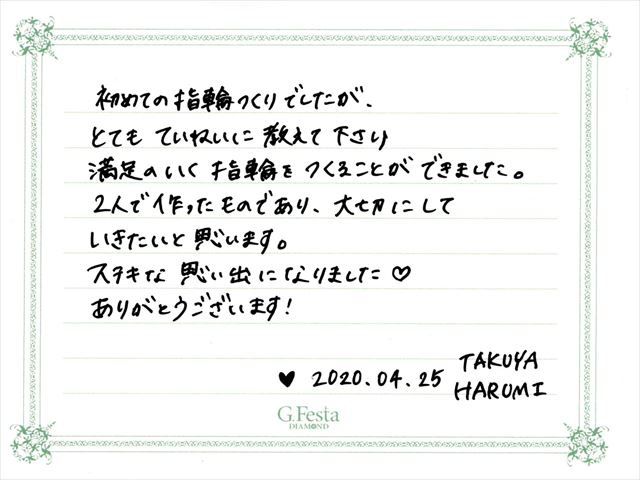 初めての指輪つくりでしたが、
とても ていねいに 教えて下さり
満足のいく 指輪を つくることが できました。
2人で作ったものであり、大切にして
いきたいと思います。
ステキな 思い出になりました♡
ありがとうございます!
♥ 2020.04.25 TAKUYA
HARUMI
G.Festa
DIAMOND